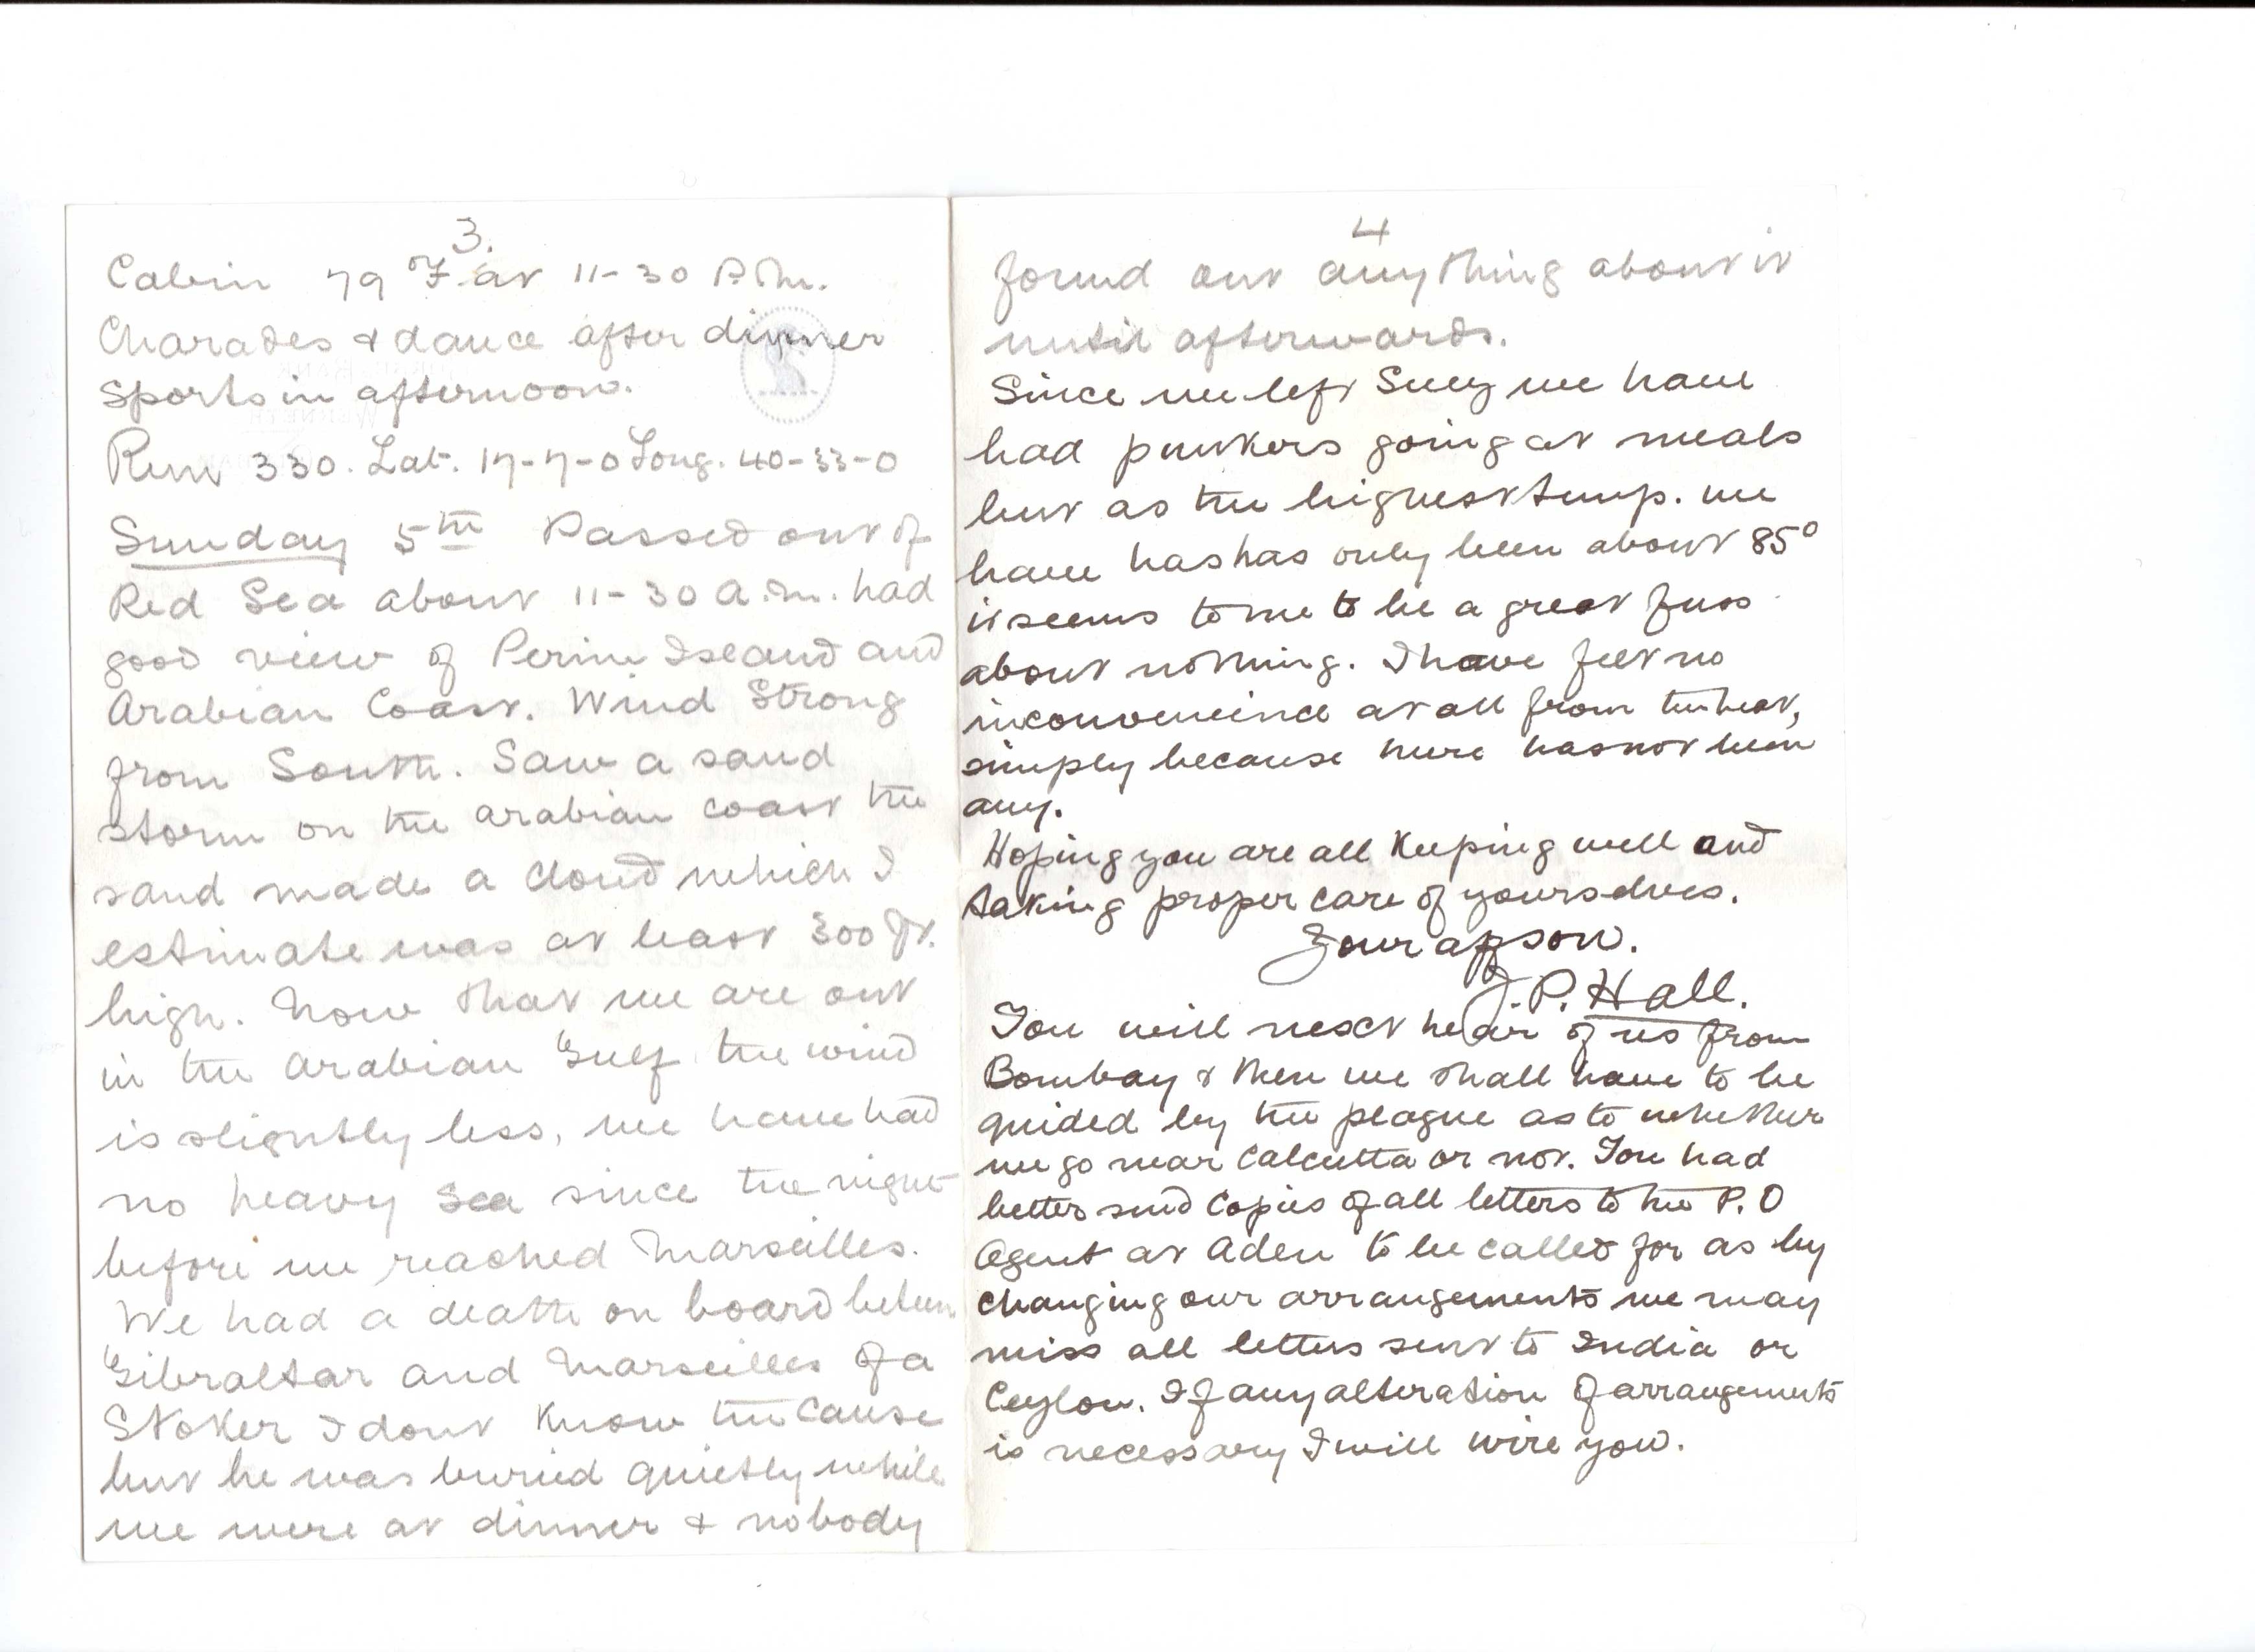 3.
Cabin 79 °F at 11-30 P.M.
Charades & dance after dinner
Sports in afternoon.
Run 330. Lat. 17-7-0 Long. 40-33-0
Sunday 5th Passed out of
Red Sea about 11-30 A.M. had
good view of Perim Island and
Arabian Coast. Wind Strong
from South. Saw a sand
storm on the arabian coast the
sand made a cloud which I
estimate was at least 300 ft.
high. Now that we are out
in the Arabian Gulf the wind
is slightly less, we have had
no heavy sea since the night
before we reached Marseilles.
We had a death on board between
Gibraltar and Marseilles of a
Stoker I dont know the cause
but he was buried quietly while
we were at dinner & nobody
4
found out anything about it
until afterwards.
Since we left Suez we have
had punkers going at meals
but as the highest temp. we
have has has only been about 85°
it seems to me to be a great fuss
about nothing. I have felt no
inconvenience at all from the heat,
simply because there has not been
any.
Hoping you are all keeping well and
taking proper care of yourselves.
Your aff son.
J.P. Hall.
You will next hear of us from
Bombay & then we shall have to be
guided by the plague as to whether
we go near Calcutta or not. You had
better send copies of all letters to the P.O
Agent at Aden to be called for as by
changing our arrangements we may
miss all letters sent to India or
Ceylon. If any alteration of arrangements
is necessary I will wire you.